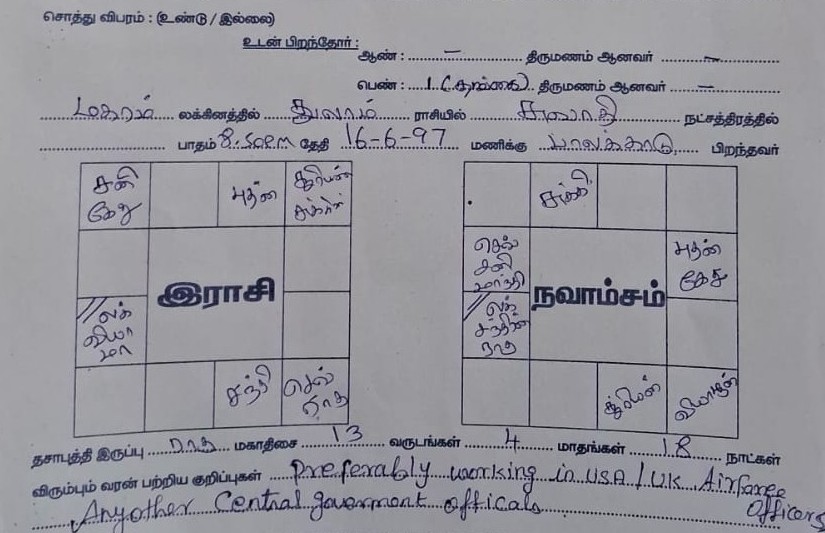 சொத்து விபரம் : (உண்டு / இல்லை)
உடன் பிறந்தோர் :
ஆண் : – திருமணம் ஆனவர் –
பெண் : 1 (தங்கை) திருமணம் ஆனவர் –
மகரம் லக்கினத்தில் துலாம் ராசியில் சுவாதி நட்சத்திரத்தில்
பாதம் 8.50PM தேதி 16-6-97 மணிக்கு பாலக்காடு பிறந்தவர்
சனி கேது
புதன்
சூரியன் சுக்கிரன்
இராசி
லக் வியா மா
சந்தி
செவ் ராகு
சுக்கி
செவ் சனி மாந்தி
புதன் கேது
நவாம்சம்
லக் சந்திரன் ராகு
சூரியன்
வியாழன்
தசாபுத்தி இருப்பு ராகு மகாதிசை 13 வருடங்கள் 4 மாதங்கள் 18 நாட்கள்
விரும்பும் வரன் பற்றிய குறிப்புகள் Preferably working in USA / UK Airforce Officers
Anyother Central goverment officals